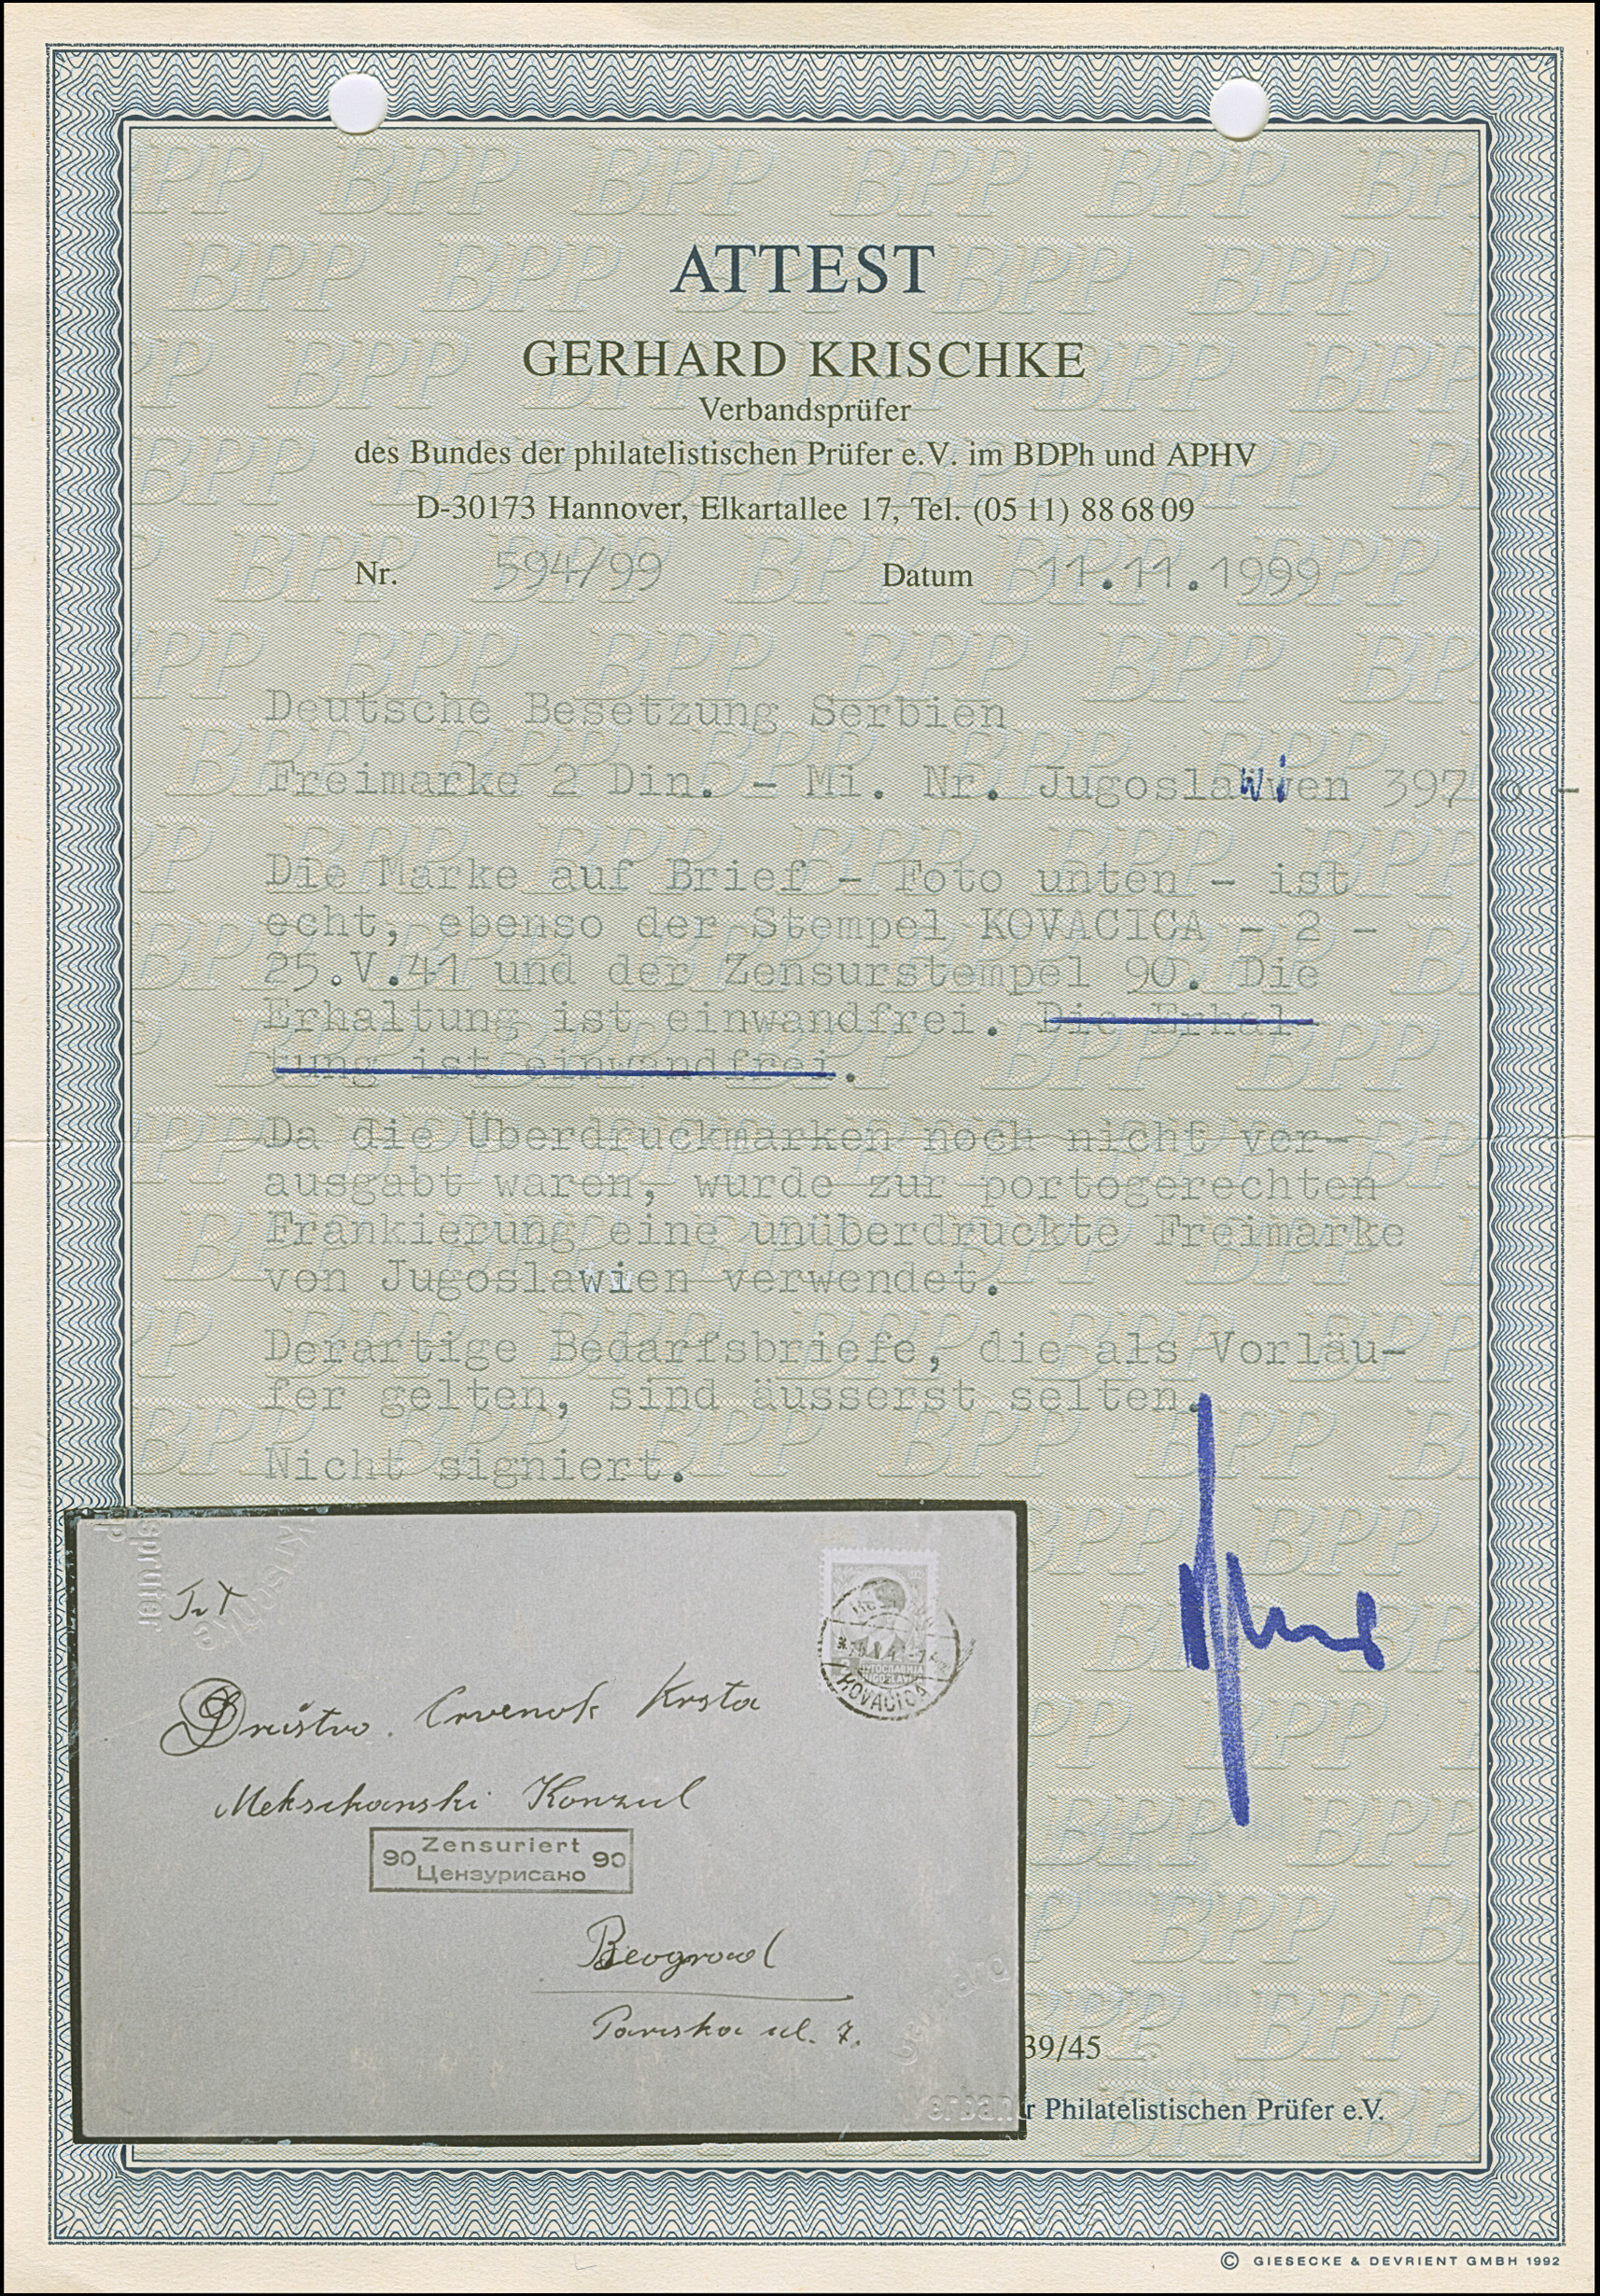 ATTEST
GERHARD KRISCHKE
Verbandsprüfer
des Bundes der philatelistischen Prüfer e.V. im BDPh und APHV
D-30173 Hannover, Elkartallee 17, Tel. (05 11) 88 68 09
Nr. 594/99 Datum 11.11.1999
Deutsche Besetzung Serbien
Freimarke 2 Din. - Mi. Nr. Jugoslawien 397 o -
Die Marke auf Brief - Foto unten - ist
echt, ebenso der Stempel KOVACICA - 2 -
25.V.41 und der Zensurstempel 90. Die
Erhaltung ist einwandfrei. Die Erhal-
tung ist einwandfrei.
Da die Überdruckmarken noch nicht ver-
ausgabt waren, wurde zur portogerechten
Frankierung eine unüberdruckte Freimarke
von Jugoslawien verwendet.
Derartige Bedarfsbriefe, die als Vorläu-
fer gelten, sind äusserst selten.
Nicht signiert.
ЈУГОСЛАВИЈА
JUGOSLAVIJA
KOVAČICA
Društvo Crvenok Krsta
Meksikanski Konzul
90 Zensuriert 90
Цензурисано
Beograd
Pariska ul. 7.
39/45
r Philatelistischen Prüfer e.V.
© GIESECKE & DEVRIENT GMBH 1992